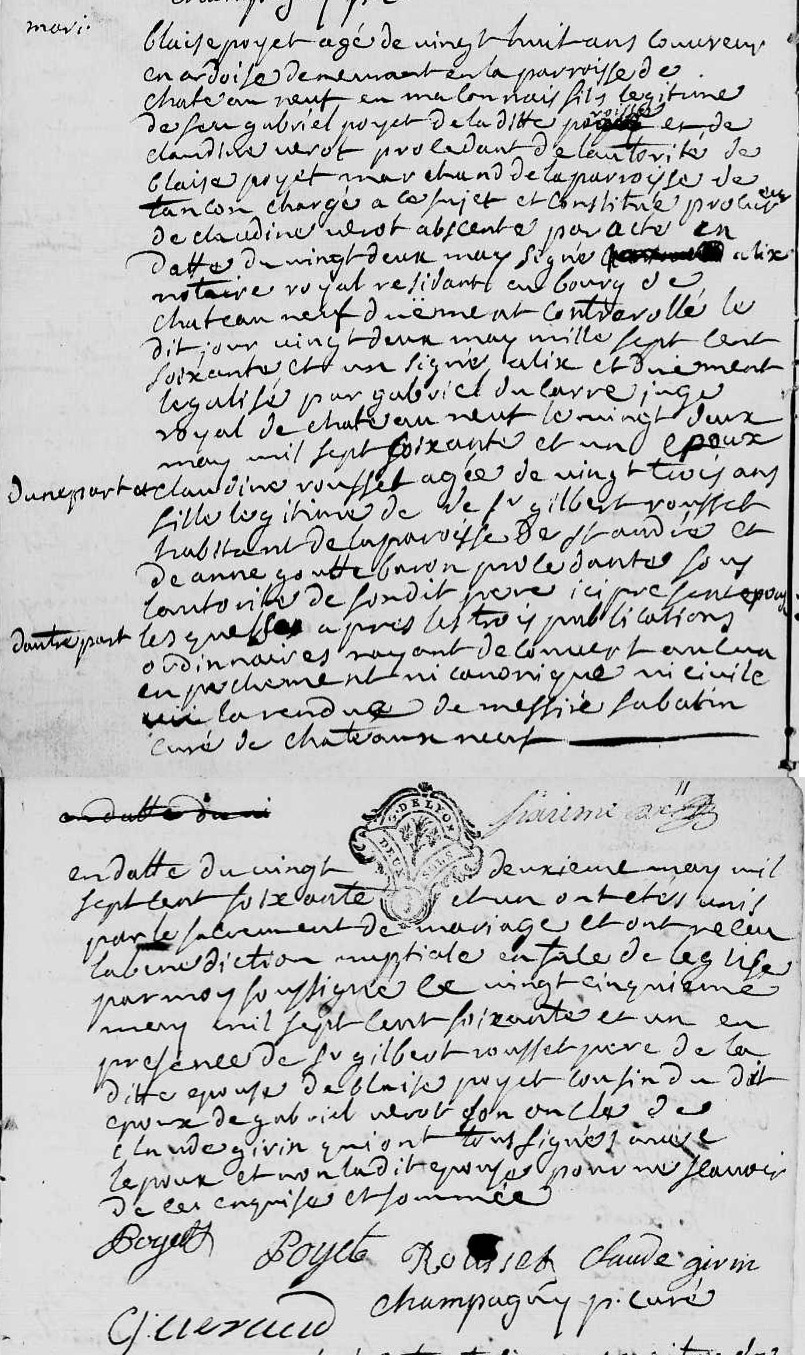 mari.
blaise poyet agé de vingt huit ans couvreur
en ardoise demeurant en la parroisse de
chateau neuf en maconnais fils legitime
de feu gabriel poyet de la ditte parroisse et de
claudine verot procedant de lautorité de
blaise poyet marchand de la parroisse de
tancon chargé a ce sujet et constitué procureur
de claudine verot absente par acte en
datte du vingt deux may signé alix
notaire royal residant au bourg de
chateau neuf duëment controllé le
dit jour vingt deux may mille sept cent
soixante et un signé alix et duement
legalisé par gabriel ducarre juge
royal de chateau neuf le vingt deux
may mil sept soixante et un epoux
dune part et claudine rousset agée de vingt trois ans
fille legitime de de sr gilbert rousset
habitant de la paroisse de st andré et
de anne goutte baron procedante sous
lautorité de son dit pere ici present epouse
dautre part lesquelles apres les trois publications
ordinnaires nayant decouvert aucun
enpechement ni canonique ni civile
vü la rendue de messire sabatin
curé de chateaux neuf
en datte du vi
en datte du vingt deuxieme may mil
G. DE LYON
DEUX SOLS
sept cent soixante et un ont etes unis
par le sacrement de mariage et ont receu
la benediction nuptiale en fale de leglise
par moy soussigné le vingt cinquieme
may mil sept cent soixante et un en
presence de sr gilbert rousset pere de la
ditte epouse de blaise poyet cousin du dit
epoux de gabriel verot son oncle de
claude girin qui ont tous signés avec
lepoux et non la dit epouse pour ne scavoir
de ce enquise et sommée
Poyet Poyet Rousset Claude girin
G. veraud champagny p. curé